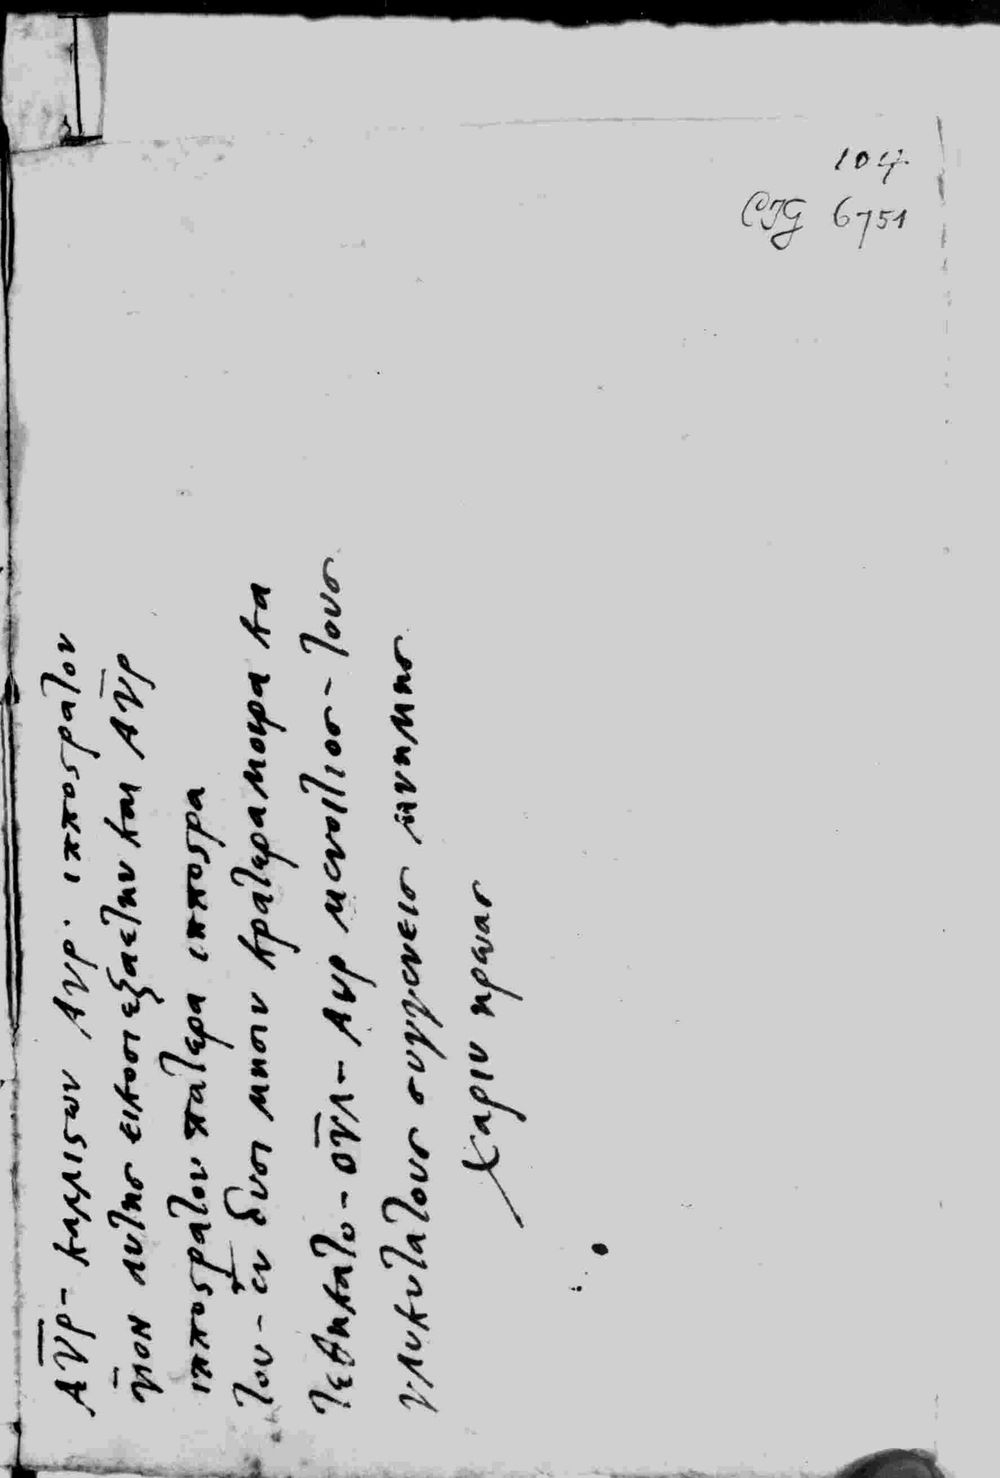 104
CIG 6751
ΑΥΡ- καλλιστων Αυρ. ιπποστρατον
υιον αυτησ εικοσιεξαετην και ΑΥΡ
ιπποστρατον πατερα ιπποστρα
του - εν δυσι μησιν κρατεραμοιρα κα
τεθηκατο - ουλ - Αυρ μενοιτιοσ - τουσ
γλυκυτατουσ συγγενεισ μνημησ
χαριν ηρωασ